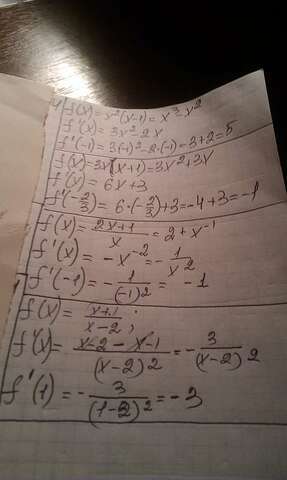 f(x)=x²(x-1)=x³-x²
f'(x)=3x²-2x
f'(-1)=3(-1)²-2·(-1)=3+2=5
f(x)=3x(x+1)=3x²+3x
f'(x)=6x+3
f'(-2/3)=6·(-2/3)+3=-4+3=-1
f(x)=(2x+1)/x=2+x⁻¹
f'(x)=-x⁻²=-1/x²
f'(-1)=-1/(-1)²=-1
f(x)=(x+1)/(x-2);
f'(x)=(x-2-x-1)/(x-2)²=-3/(x-2)²
f'(1)=-3/(1-2)²=-3